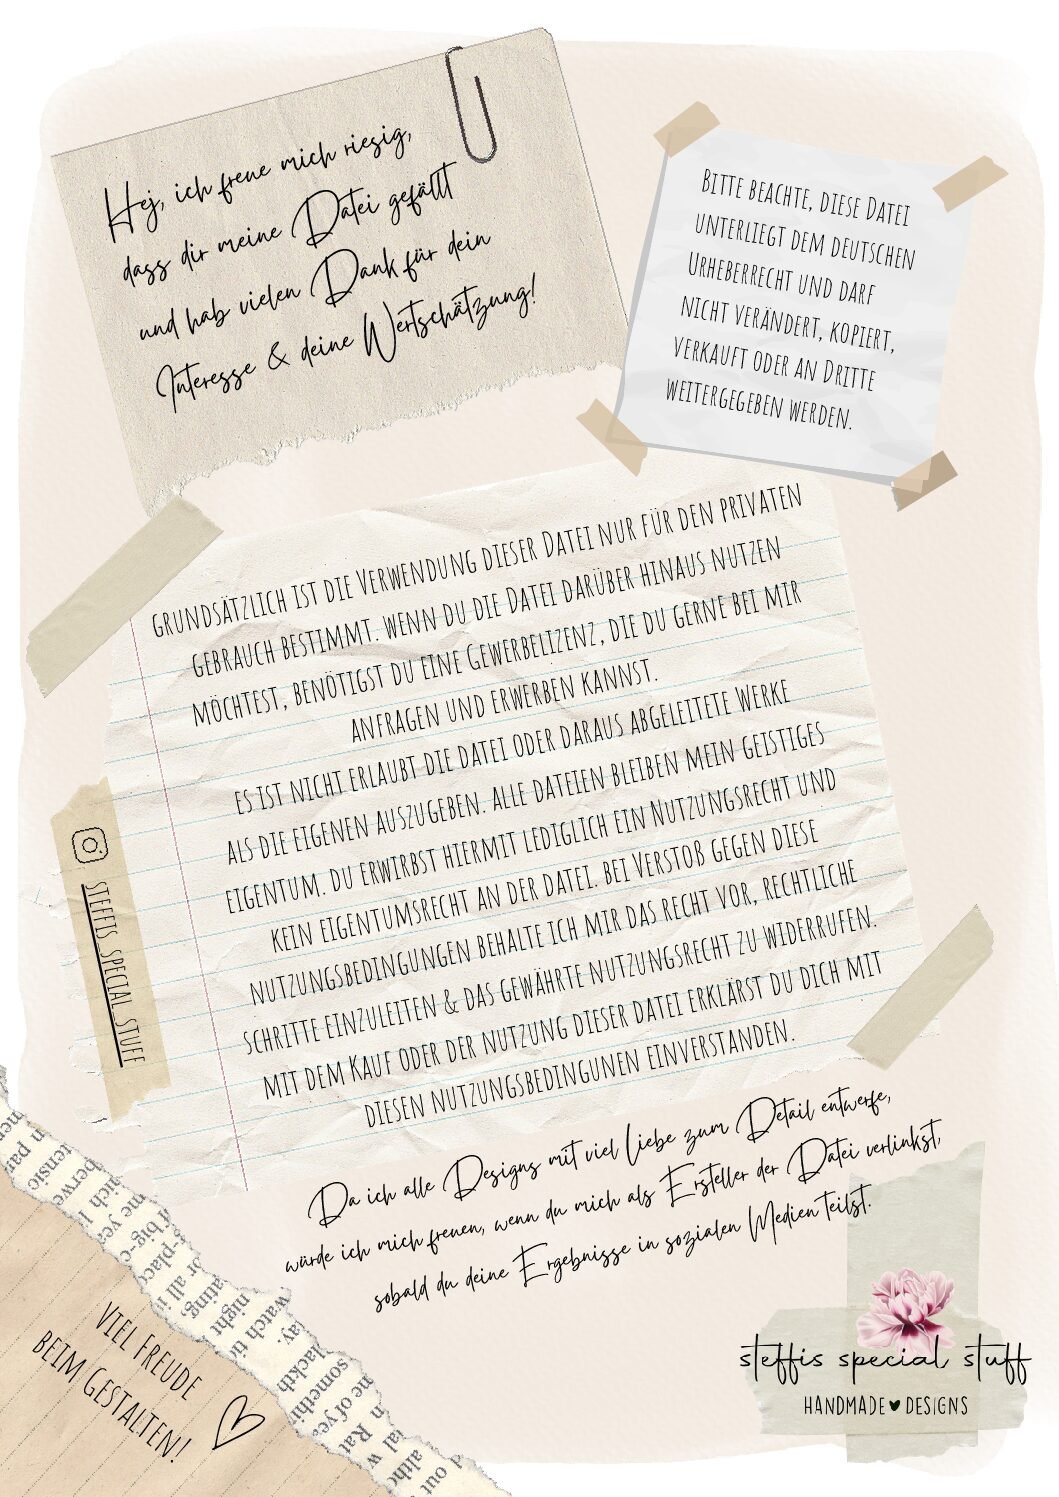 Hej, ich freue mich riesig,
dass dir meine Datei gefällt
und hab vielen Dank für dein
Interesse & deine Wertschätzung!
BITTE BEACHTE, DIESE DATEI
UNTERLIEGT DEM DEUTSCHEN
URHEBERRECHT UND DARF
NICHT VERÄNDERT, KOPIERT,
VERKAUFT ODER AN DRITTE
WEITERGEGEBEN WERDEN.
GRUNDSÄTZLICH IST DIE VERWENDUNG DIESER DATEI NUR FÜR DEN PRIVATEN
GEBRAUCH BESTIMMT. WENN DU DIE DATEI DARÜBER HINAUS NUTZEN
MÖCHTEST, BENÖTIGST DU EINE GEWERBELIZENZ, DIE DU GERNE BEI MIR
ANFRAGEN UND ERWERBEN KANNST.
ES IST NICHT ERLAUBT DIE DATEI ODER DARAUS ABGELEITETE WERKE
ALS DIE EIGENEN AUSZUGEBEN. ALLE DATEIEN BLEIBEN MEIN GEISTIGES
EIGENTUM. DU ERWIRBST HIERMIT LEDIGLICH EIN NUTZUNGSRECHT UND
KEIN EIGENTUMSRECHT AN DER DATEI. BEI VERSTOß GEGEN DIESE
NUTZUNGSBEDINGUNGEN BEHALTE ICH MIR DAS RECHT VOR, RECHTLICHE
SCHRITTE EINZULEITEN & DAS GEWÄHRTE NUTZUNGSRECHT ZU WIDERRUFEN.
MIT DEM KAUF ODER DER NUTZUNG DIESER DATEI ERKLÄRST DU DICH MIT
DIESEN NUTZUNGSBEDINGUNEN EINVERSTANDEN.
STEFFIS_SPECIAL_STUFF
Da ich alle Designs mit viel Liebe zum Detail entwerfe,
würde ich mich freuen, wenn du mich als Ersteller der Datei verlinkst,
sobald du deine Ergebnisse in sozialen Medien teilst.
VIEL FREUDE
BEIM GESTALTEN!
steffis special stuff
HANDMADE DESIGNS